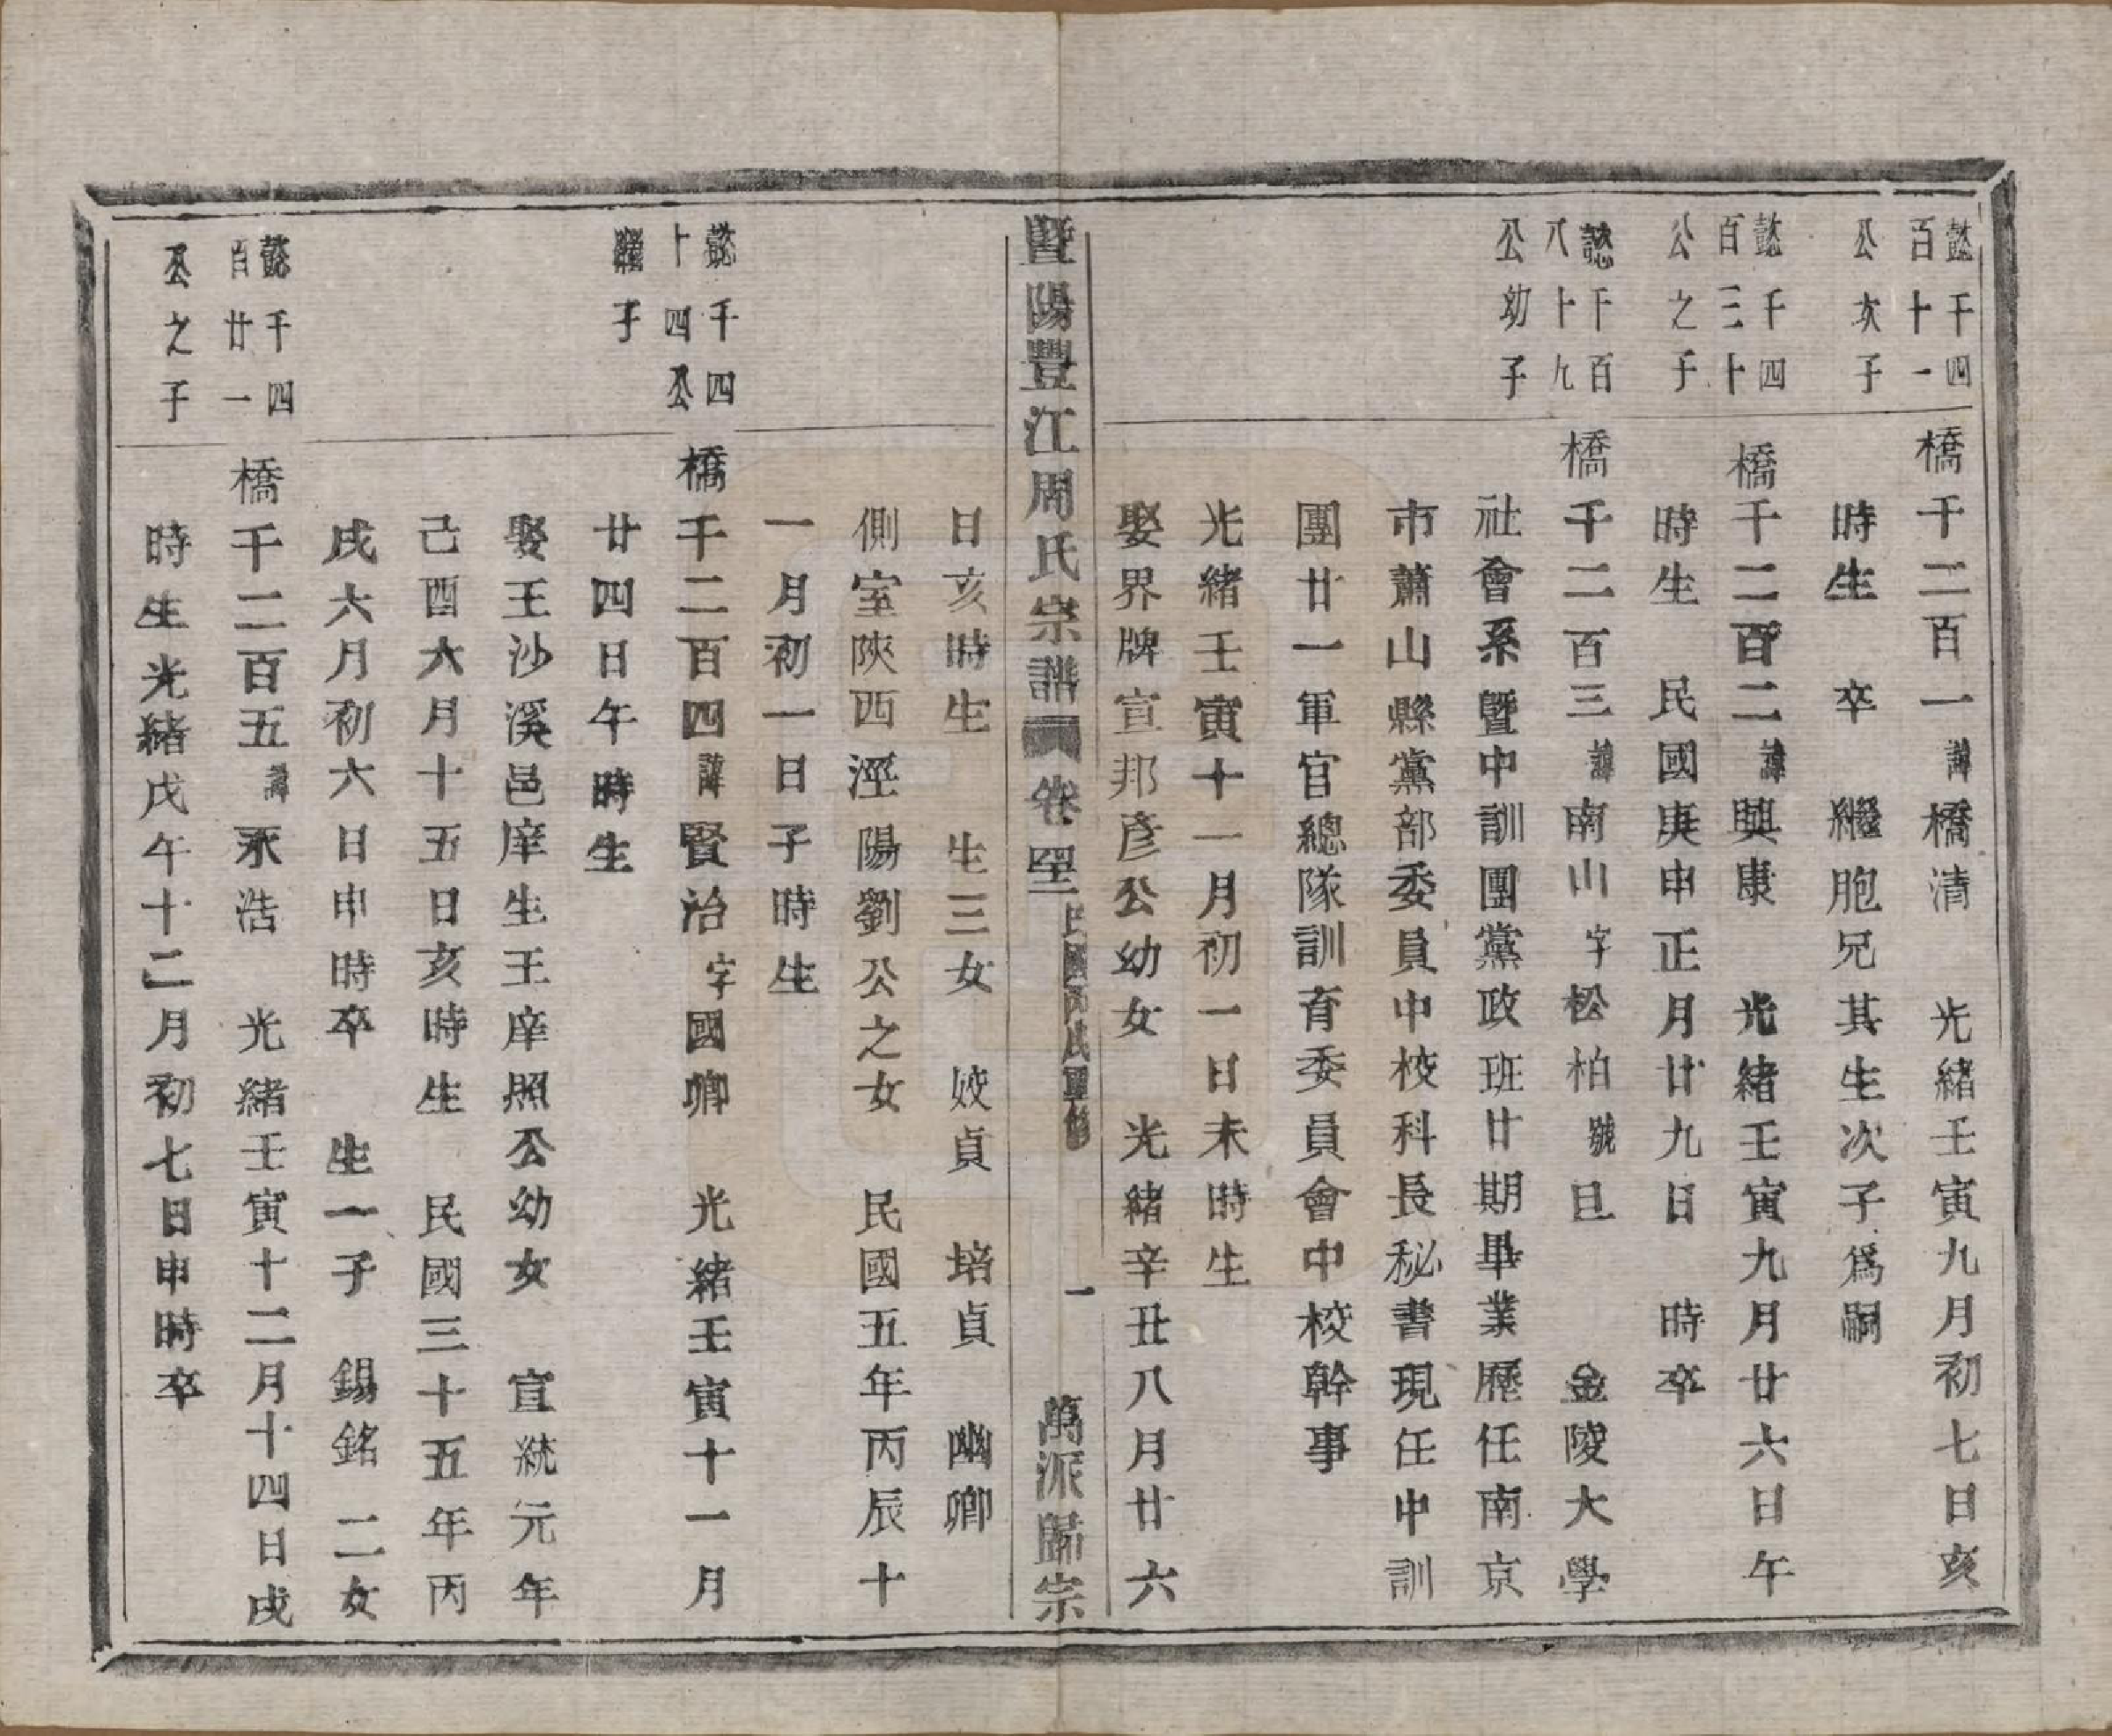 懿千四
百十一
公次子
橋千二百一諱橋清　光緒壬寅九月初七日亥
時生　卒　繼胞兄其生次子爲嗣
懿千四
百三十
公之子
橋千二百二諱興康　光緒壬寅九月廿六日午
時生　民國庚申正月廿九日　時卒
懿千百
八十九
公幼子
橋千二百三諱南山字松柏號旦　金陵大學
社會系曁中訓團黨政班廿期畢業歷任南京
市蕭山縣黨部委員中校科長秘書現任中訓
團廿一軍官總隊訓育委員會中校幹事
光緒壬寅十一月初一日未時生
娶界牌宣邦彥公幼女　光緒辛丑八月廿六
曁陽豐江周氏宗譜　卷
一
萬派歸宗
日亥時生　生三女　姣貞　培貞　幽卿
側室陝西涇陽劉公之女　民國五年丙辰十
一月初一日子時生
懿千四
十四公
繼子
橋千二百四諱賢治字國卿　光緒壬寅十一月
廿四日午時生
娶王沙溪邑庠生王庠照公幼女　宣統元年
己酉六月十五日亥時生　民國三十五年丙
戌六月初六日申時卒　生一子　錫銘　二女
懿千四
百廿一
公之子
橋千二百五諱永浩　光緒壬寅十二月十四日戌
時生光緒戊午十二月初七日申時卒